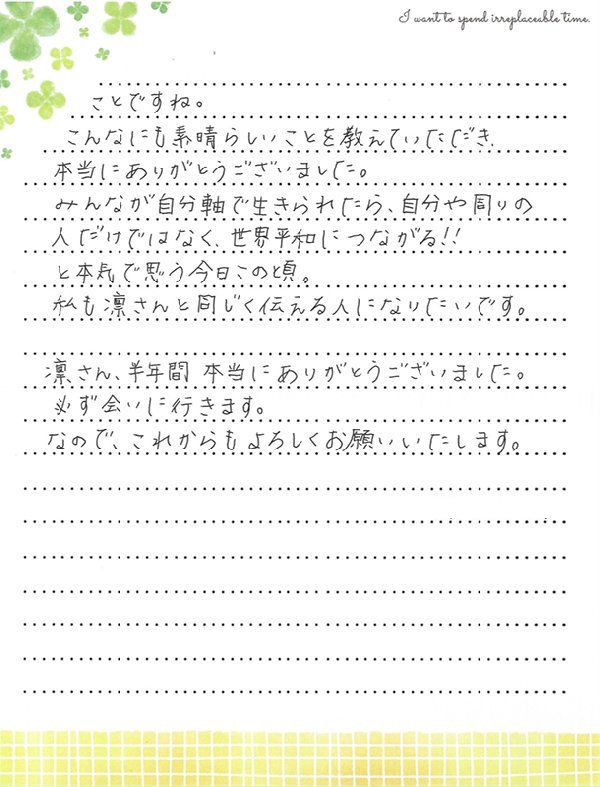 I want to spend irreplaceable time.
ことですね。
こんなにも素晴らしいことを教えていただき、
本当にありがとうございました。
みんなが自分軸で生きられたら、自分や周りの
人だけではなく、世界平和につながる!!
と本気で思う今日この頃。
私も凛さんと同じく伝える人になりたいです。
凛さん、半年間 本当にありがとうございました。
必ず会いに行きます。
なので、これからもよろしくお願いいたします。